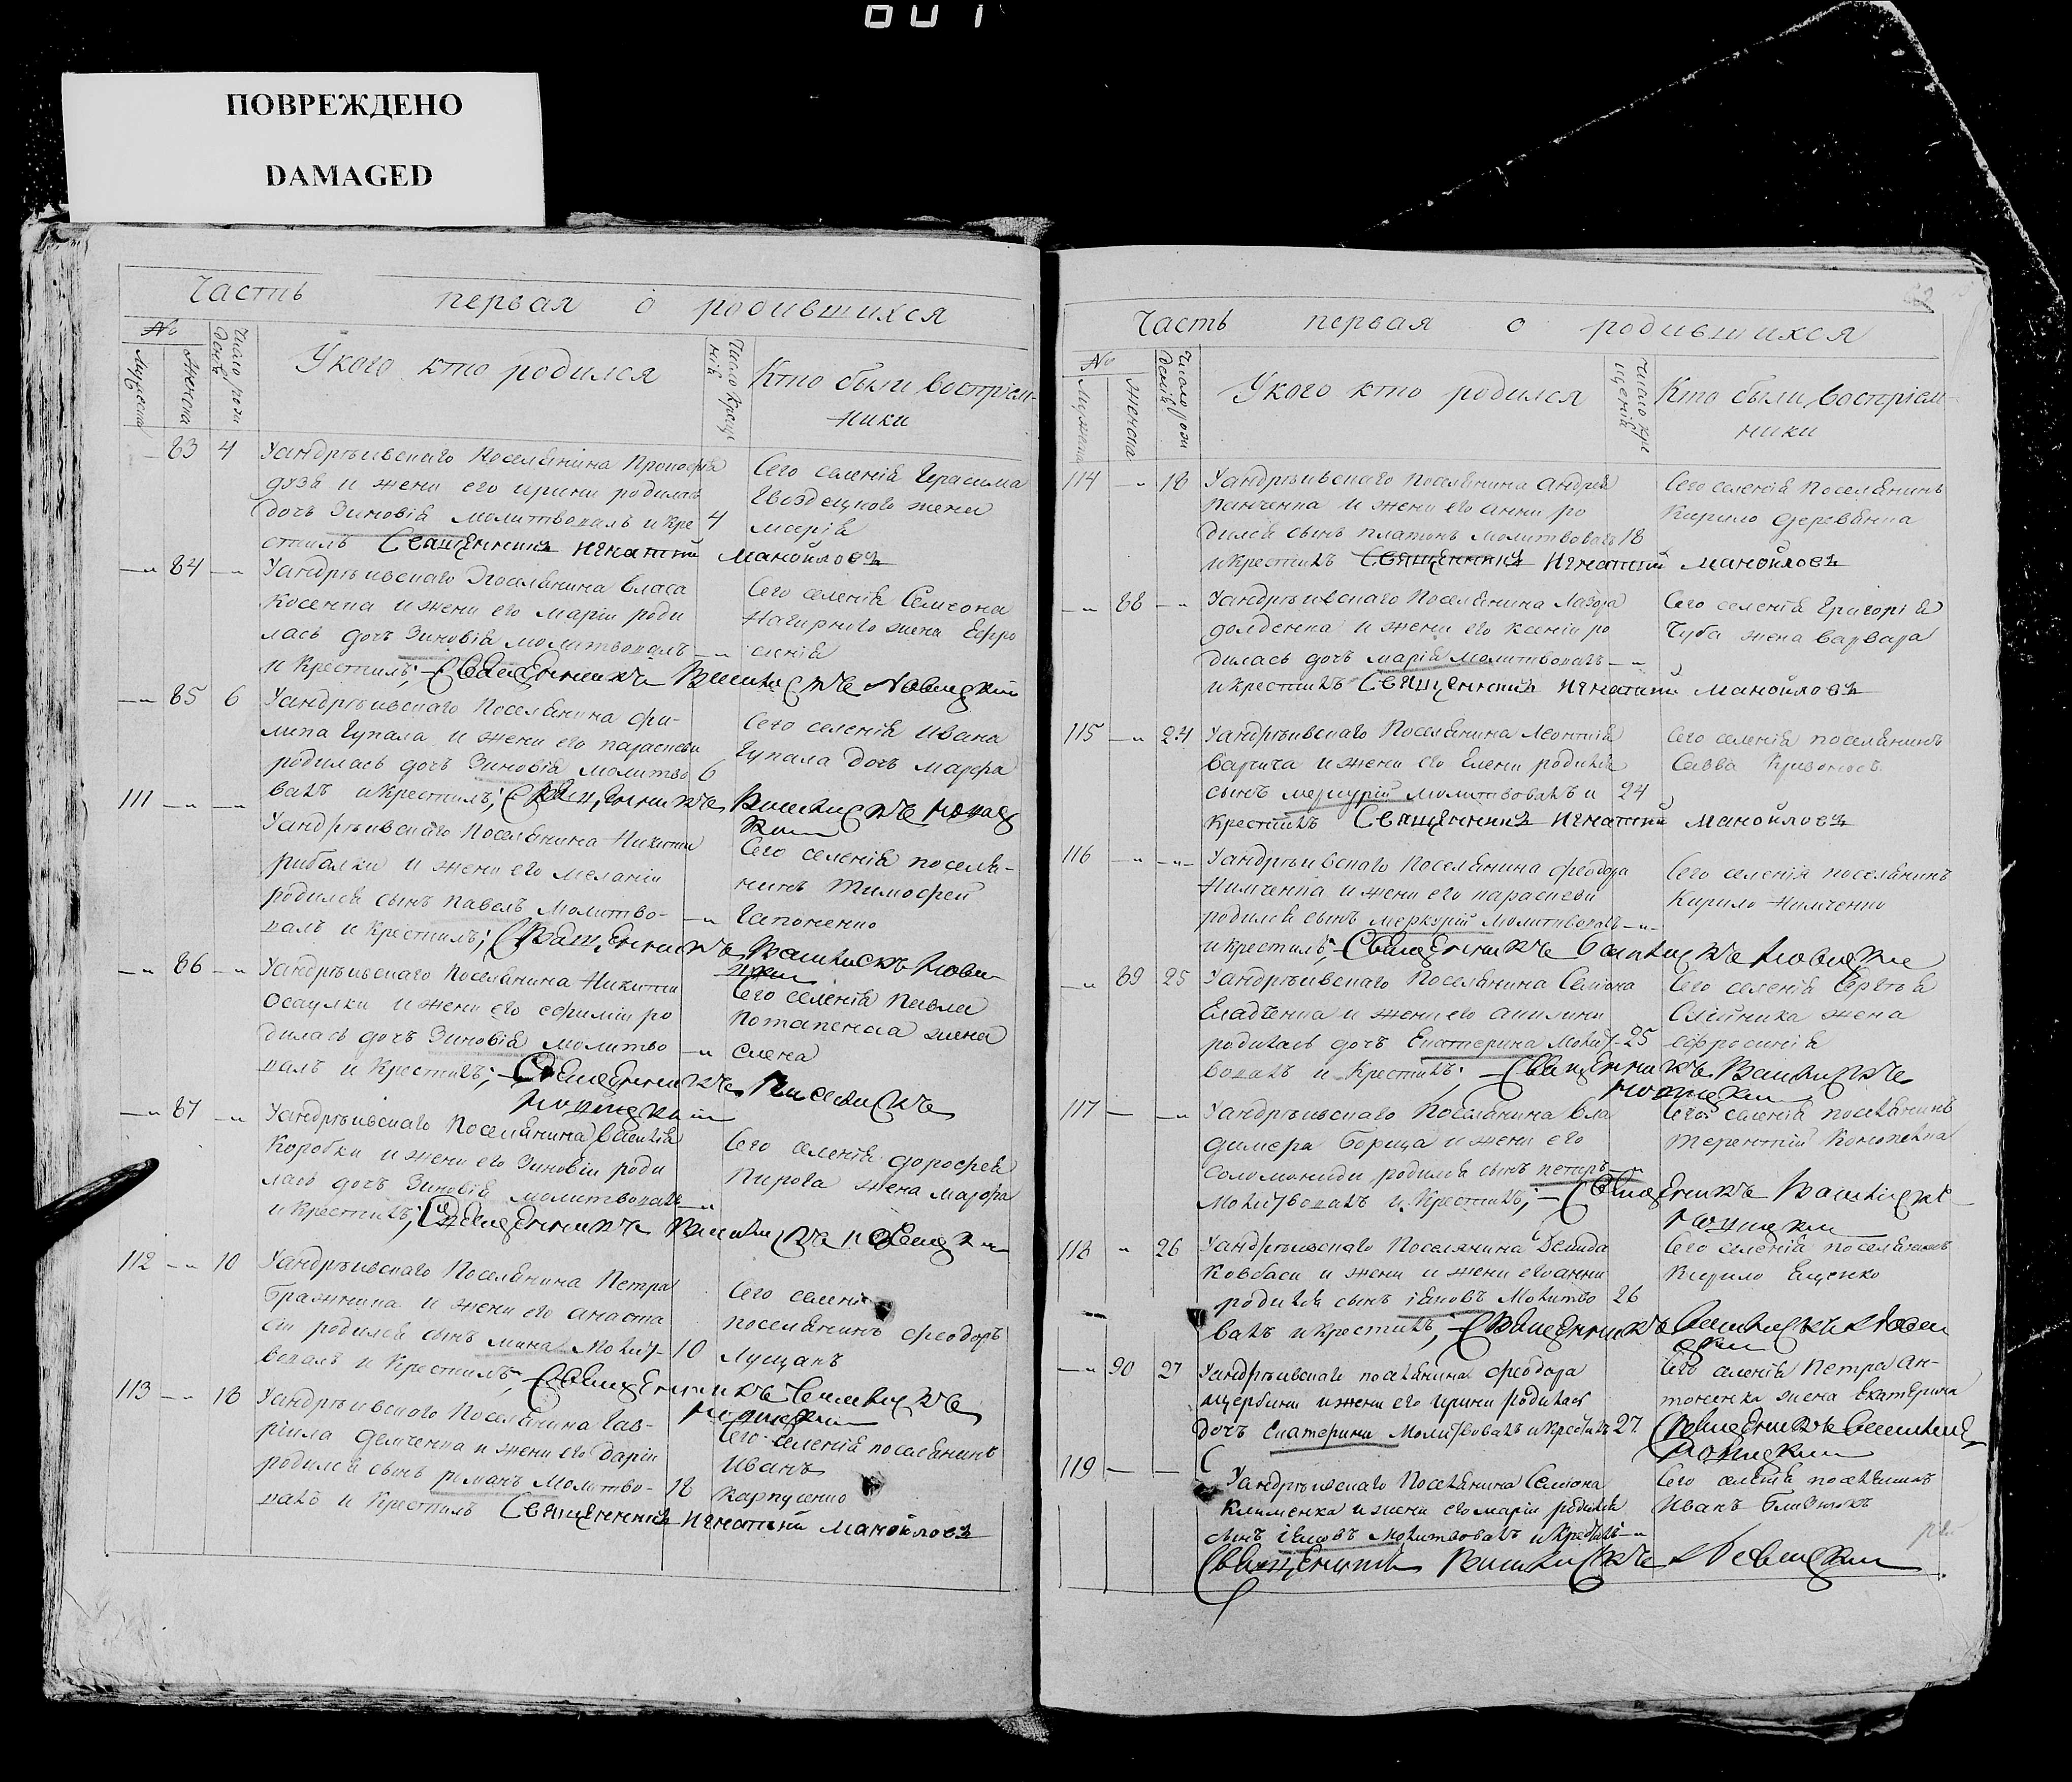 ПОВРЕЖДЕНО
DAMAGED
Часть первая о родившихся
№
Мужеска
Женска
Число рож
деній
У кого кто родился
Число креще
ній
Кто были воспріем-
ники
83 4 У андрѣивскаго Поселянина Прокофія
и жени его ирини родилась
дочь Зиновія молитвовалъ и кре 4
стилъ Священникъ Игнатій Манойловъ
Сего селенія Герасима
Гвоздецкого жена
марія
84 У андрѣивскаго Поселянина Власа
Косенка и жени его маріи роди
лась дочь Зиновія молитвовалъ
и Крестилъ; Священникъ Новицкій
Сего селенія Симеона
Нагирного жена Ефро
синія
85 6 У андрѣивскаго Поселянина фи-
липа Чупала и жени его параскеви
родилась дочь Зиновія молитво 6
валъ и крестилъ; Священникъ
Сего селенія Ивана
Чупала дочь марфа
111 У андрѣивскаго Поселянина Никити
рибалки и жени его меланіи
родился сынъ павелъ Молитво-
валъ и Крестилъ; Священникъ
Сего селенія поселя-
нинъ Тимофей
Гапоненко
86 У андрѣивскаго Поселянина Никити
Осаулки и жени его ефиміи ро
дилась дочь Зиновія молитво
валъ и Крестилъ; Священникъ
Сего селенія Павла
Потапенка жена
елена
87 У андрѣивскаго Поселянина Василія
Коробки и жени его Зиновіи роди
лась дочь Зиновія молитвовалъ
и Крестилъ; Священникъ
Сего селенія дорофея
Пирога жена марфа
112 10 У андрѣивскаго Поселянина Петра
Бражника и жени его анаста
сіи родился сынъ мина Молит- 10
вовалъ и Крестилъ; Священникъ
Сего селенія
поселянинъ феодоръ
Лущанъ
113 18 У андрѣивского Поселянина Гав-
ріила демченка и жени его даріи
родился сынъ романъ Молитво- 18
валъ и Крестилъ Священникъ Игнатій Манойловъ
Сего селенія поселянинъ
Иванъ
Карпусенко
Часть первая о родившихся
№
Мужеска
Женска
Число рож
деній
У кого кто родился
Число кре
щеній
Кто были воспріем-
ники
114 18 У андрѣивскаго Поселянина андрея
панченка и жени его анни ро
дился сынъ платонъ молитвовалъ 18
и крестилъ Священникъ Игнатій Манойловъ
Сего селенія Поселянинъ
Кирило деревянка
88 У андрѣивскаго Поселянина Лазора
долденка и жени его ксеніи ро
дилась дочь марія молитвовалъ
и крестилъ Священникъ Игнатій Манойловъ
Сего селенія Григорія
Чуба жена варвара
115 24 У андрѣивскаго Поселянина Леонтія
и жени его Елени родился
сынъ меркурій молитвовалъ и 24
крестилъ Священникъ Игнатій Манойловъ
Сего селенія поселянинъ
Савва Кривоносъ
116 У андрѣивскаго Поселянина феодора
Нимченка и жени его параскеви
родился сынъ меркурій Молитвовалъ
и крестилъ; Священникъ
Сего селенія поселянинъ
Кирило Нимченко
89 25 У андрѣивскаго Поселянина Семіона
Сладченка и жени его акилини
родилась дочь Екатерина Молит- 25
вовалъ и Крестилъ; Священникъ
Сего селенія Сергѣя
Олійника жена
ефросинія
117 У андрѣивскаго Поселянина Вла
димера Борща и жени его
соломониди родился сынъ петръ
молитвовалъ и крестилъ; Священникъ
Сего селенія поселянинъ
терентій Коноплка
118 26 У андрѣивскаго Поселянина Демида
Ковбаси и жени и жени его анни
родился сынъ іяковъ Молитво 26
валъ и крестилъ; Священникъ
Сего селенія поселянинъ
Кирило Ещенко
90 27 У андрѣивскаго поселянина феодора
щербини и жени его ирини родилась
дочь Екатерини Молитвовалъ и крестилъ 27
Сего селенія Петра Ан-
тоненка жена Екатерина
Священникъ
119 У андрѣивскаго Поселянина Семіона
Клименка и жени его маріи родился
сынъ іяковъ молитвовалъ и крестилъ
Священникъ Новицкій
Сего селенія поселянинъ
Иванъ Близнюкъ